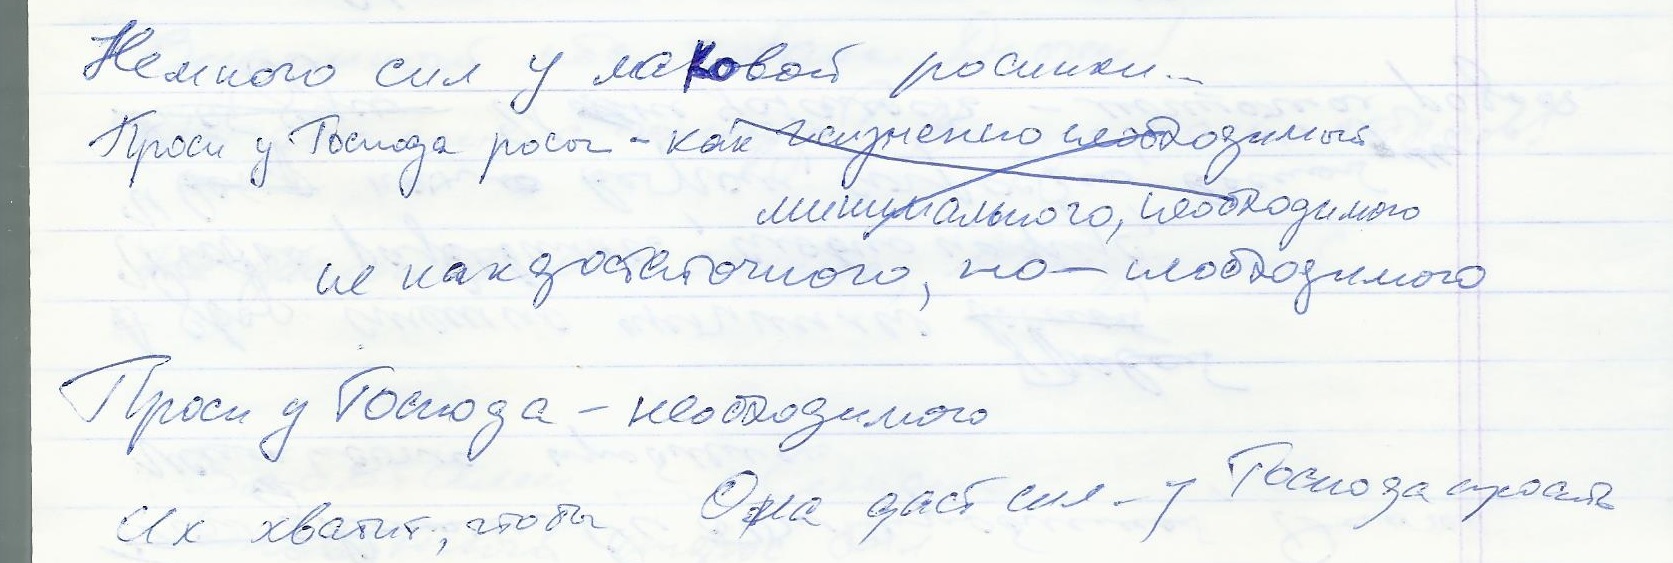 Немного сил у маковой росинки...
Проси у Господа росы - как жизненно необходимый
минимального, необходимого
не как достаточного, но - необходимого
Проси у Господа - необходимого
Их хватит, чтобы Она даст сил - у Господа просить